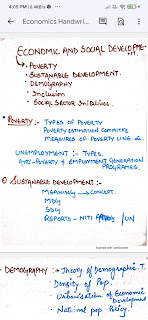 4:05 PM | 0.4KB/s
Economics Handwri...
ECONOMIC AND SOCIAL DEVELOPME-
NT.
• POVERTY
• SUSTAINABLE DEVELOPMENT.
• DEMOGRAPHY
• Inclusion
• Social Sector Initiatives.
* POVERTY :- TYPES OF POVERTY
POVERTY ESTIMATION COMMITTE
MEASURES OF POVERTY LINE &
UNEMPLOYMENT :- TYPES.
ANTI-POVERTY & EMPLOYMENT GENERATION
PROGRAMES.
SUSTAINABLE DEVELOPMENT :-
MEANING → CONCEPT.
MDGs
SDGs
REPORTS - NITI /UN
Scanned with CamScanner
DEMOGRAPHY :- • Theory of Demographic T.
Density of Pop.
Urbanisation & Economic
Development
• National pop. Policy.